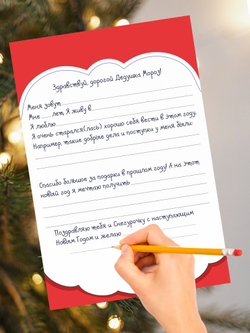 Здравствуй, дорогой Дедушка Мороз!
Меня зовут
Мне лет. Я живу в
Я люблю
Я очень старался(лась) хорошо себя вести в этом году.
Например, такие добрые дела и поступки у меня были:
Спасибо большое за подарки в прошлом году! А на этот
новый год я мечтаю получить
Поздравляю тебя и Снегурочку с наступающим
Новым Годом и желаю